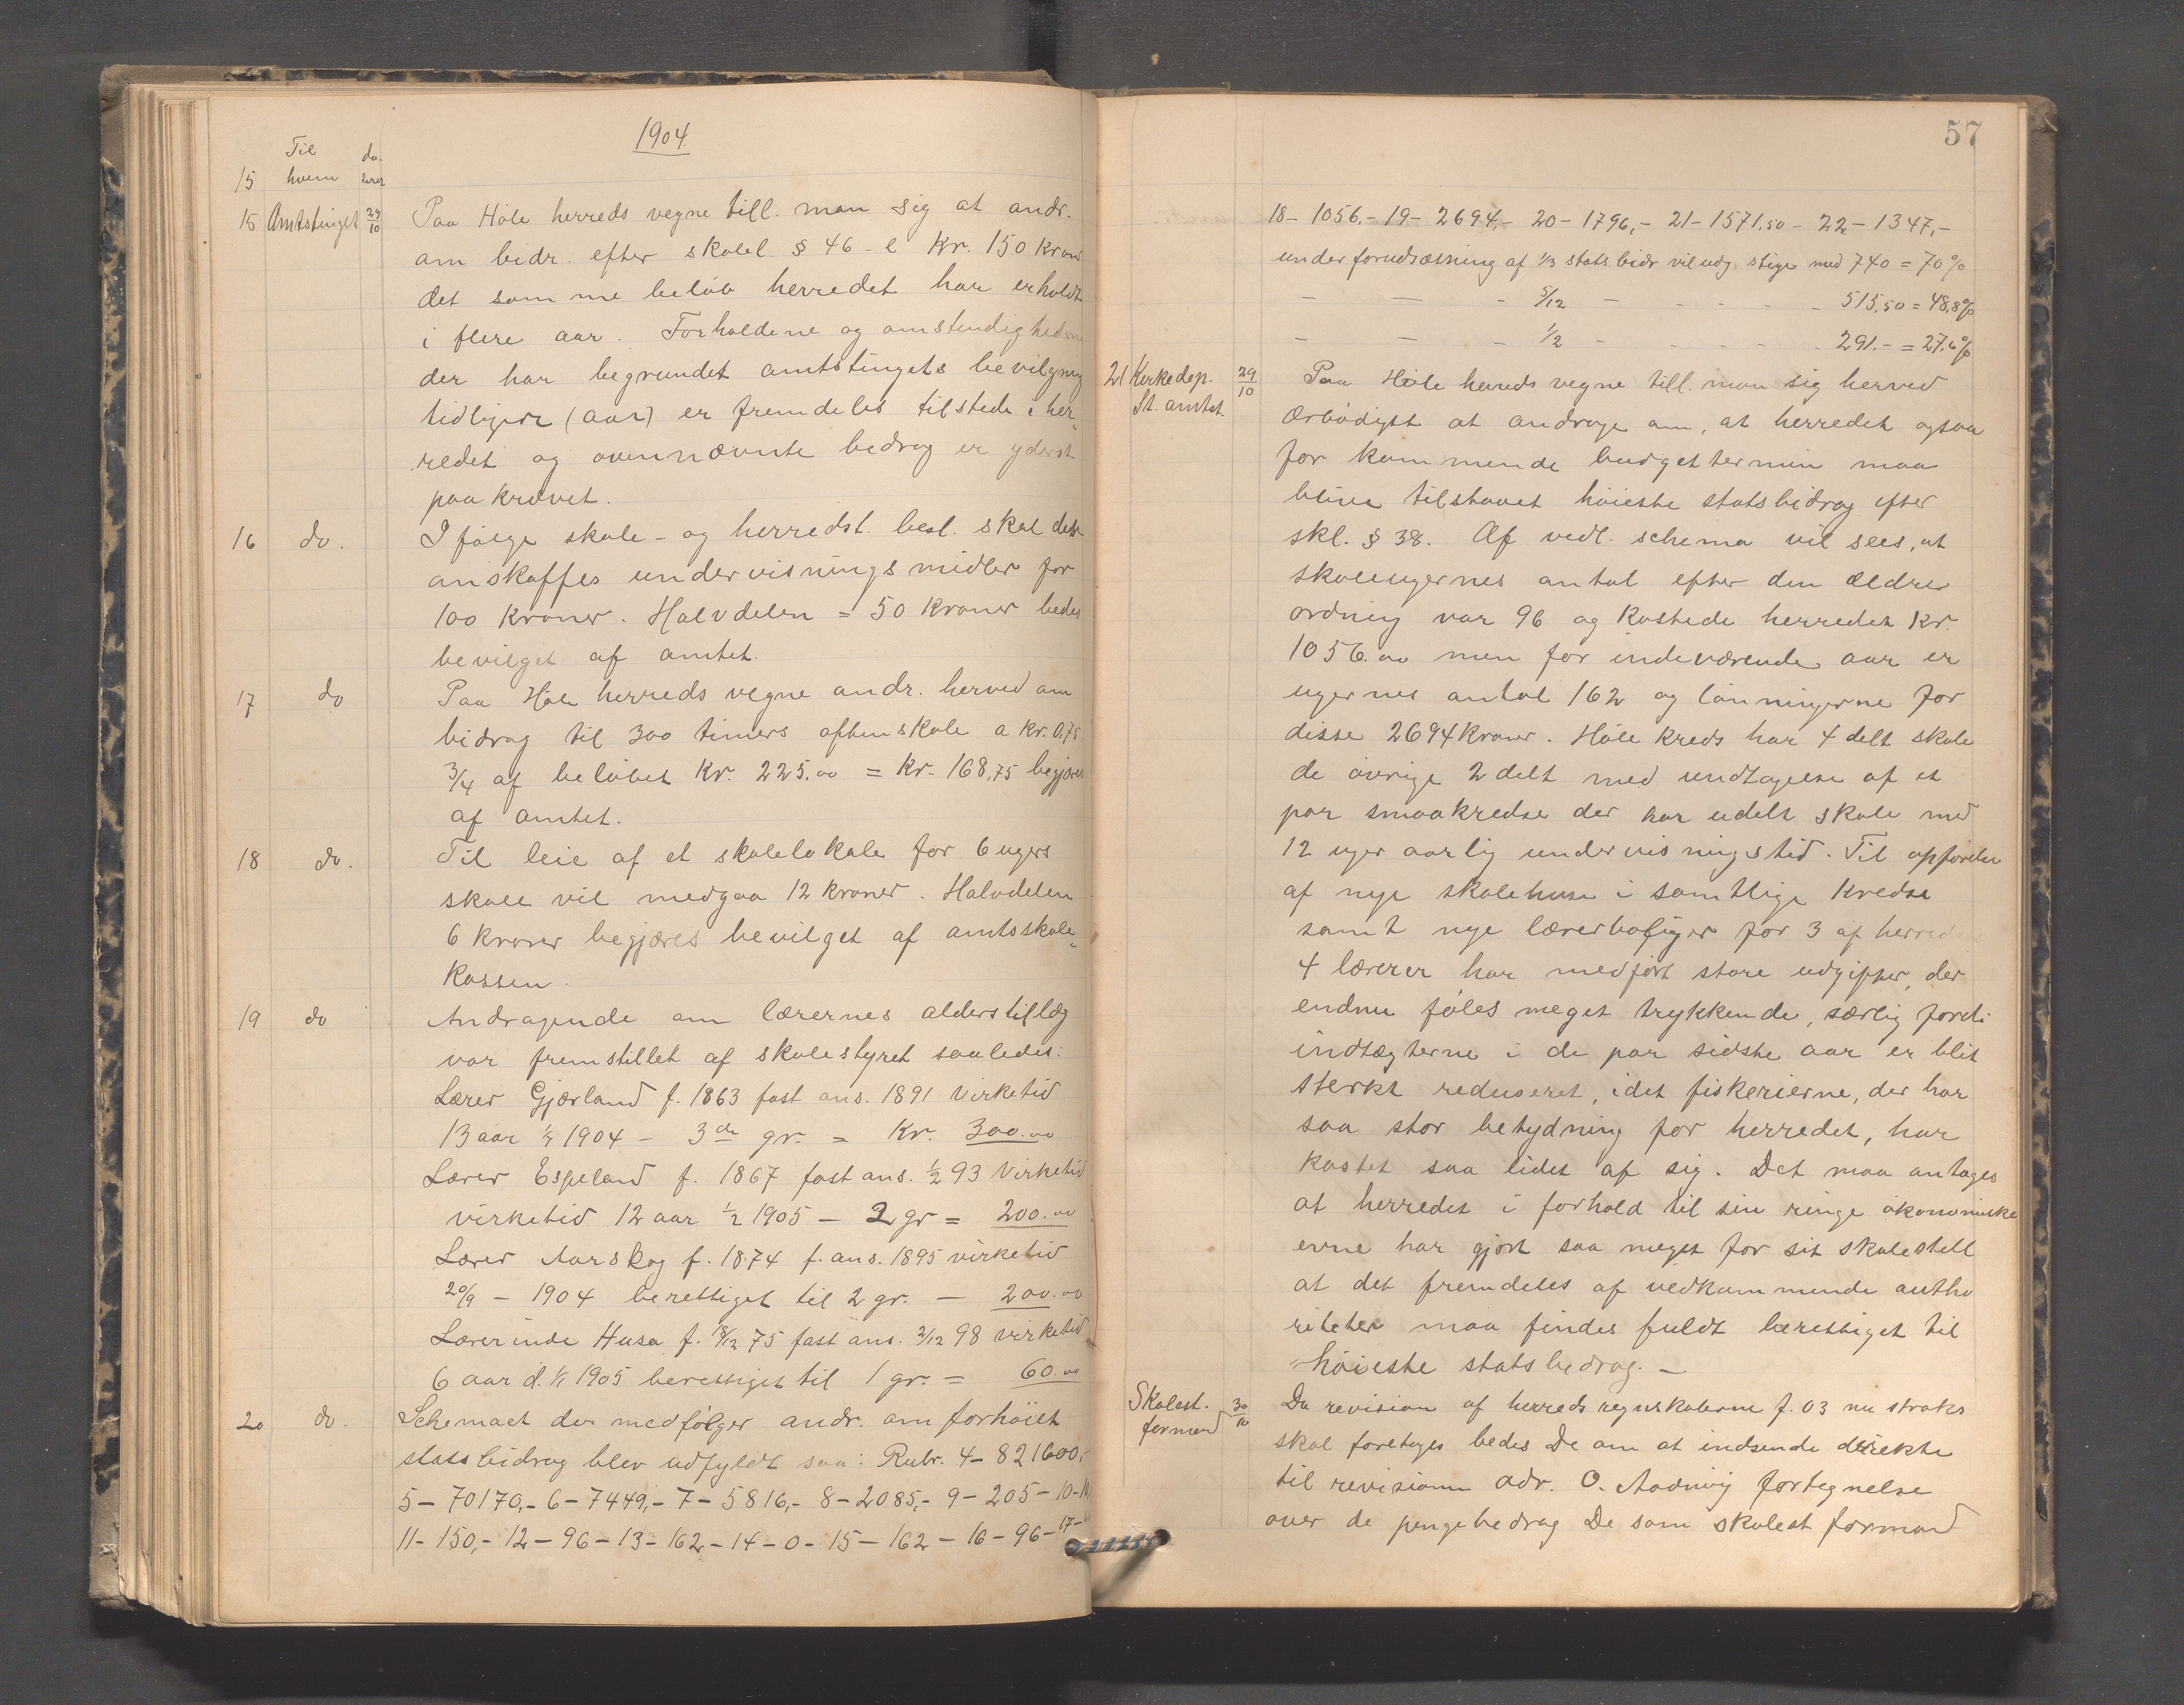 1904.
Til da-
15 hvem
15 Amtstinget 29/10 Paa Höle herreds vegne till. man sig at andr.
om bidr. efter skolel. § 46 - e Kr. 150 Kroner
det samme beløb herredet har erholdt
i flere aar. Forholdene og omstendigheder
der har begrundet amtstingets bevilgning
tidligere (aar) er fremdeles tilstede i her-
redet og ovennævnte bedrag er yderst
paakrævet.
16 do. Ifølge skole- og herredst. besl. skal der
anskaffes undervisningsmidler for
100 Kroner. Halvdelen = 50 Kroner bedes
bevilget af amtet.
17 do Paa Höle herreds vegne andr. herved om
bidrag til 300 timers aftenskole a Kr. 0,75
3/4 af beløbet Kr. 225.00 = Kr. 168,75 begjæres
af amtet.
18 do. Til leie af et skolelokale for 6 ugers
skole vil medgaa 12 Kroner. Halvdelen
6 Kroner begjæres bevilget af amtsskole-
Kassen.
19 do Andragende om lærernes alderstillæg
var fremstillet af skolestyret saaledes:
Lærer Gjærland f. 1863 fast ans. 1891 Virketid
13 aar 1904 - 3de gr. = Kr. 300.00
Lærer Espeland f. 1867 fast ans. 1/2 93 Virketid
virketid 12 aar 1/2 1905 - 2 gr = 200.00
Lærer Aarskog f. 1874 f. ans. 1895 virketid
20/9 - 1904 berettiget til 2 gr. - 200.00
Lærerinde Husa f. 8/12 75 fast ans. 2/12 98 virketid
6 aar d. 1/1 1905 berettiget til 1 gr. = 60.00
20 do. Schemaet der medfølger andr. om forhöiet
statsbidrag blev udfyldt saa: Rubr. 4- 821600,-
5- 70170,- 6- 7449,- 7- 5816,- 8- 2085,- 9- 205- 10-
11- 150,- 12- 96- 13- 162- 14- 0- 15- 162- 16- 96- 17-
57
18- 1056.- 19- 2694.- 20- 1796,- 21- 1571.50- 22- 1347,-
under forudsætning af 1/3 statsbidr vil udg. stige med 740 = 70%
- - - 5/12 - - - - - 515,50 = 48,8%
- - - 1/2 - - - - - 291.- = 27.6%
21 Kirkedep. 29/10 Paa Höle herreds vegne till. man sig herved
St. amtet. ærbödigst at andrage om, at herredet ogsaa
for kommende budgettermin maa
blive tilstaaet höieste statsbidrag efter
skl. § 38. Af vedl. schema vil sees, at
skoleugernes antal efter den ældre
ordning var 96 og kostede herredet Kr.
1056.00 men for indeværende aar er
ugernes antal 162 og lönningerne for
disse 2694 Kroner. Höle Kreds har 4 delt skole
de övrige 2 delt med undtagelse af et
par smaakredse der har udelt skole med
12 uger aarlig undervisningstid. Til opförelse
af nye skolehuse i samtlige Kredse
samt nye lærerboliger for 3 af herredets
4 lærerer har medfört store udgifter, der
endnu föles meget trykkende, særlig fordi
indtægterne i de par sidste aar er blit
sterkt reduseret, idet fiskerierne, der har
saa stor betydning for herredet, har
kastet saa lidet af sig. Det maa antages
at herredet i forhold til sin ringe økonomiske
evne har gjort saa meget for sit skolestell
at det fremdeles af vedkommende autho
riteter maa findes fuldt berettiget til
höieste statsbedrag. -
Skolest. 30/10 Da revision af herredsregnskaberne f. 03 nu straks
formand skal foretages bedes De om at indsende direkte
til revisionen adr. O. Aadnöy fortegnelse
over de pengebedrag De som skolest formand